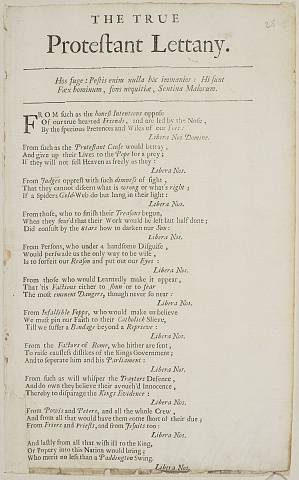 THE TRUE
Protestant Lettany.
Hos fuge: Pestis enim nulla hâc immanior: Hi sunt
Fæx hominum, fons nequitiæ, Sentina Malorum.
FROM such as the honest Intentions oppose
Of our true hearted Friends, and are led by the Nose,
By the specious Pretences and Wiles of our Foes:
Libera Nos Domine.
From such as the Protestant Cause would betray,
And give up their Lives to the Pope for a prey;
If they will not sell Heaven as freely as they:
Libera Nos.
From Judges opprest with such dimness of sight,
That they cannot discern what is wrong or what's right;
If a Spiders Gold-Web do but hang in their light:
Libera Nos.
From those, who to finish their Treasons begun,
When they fear'd that their Work would be left but half done;
Did consult by the Stars how to darken our Sun:
Libera Nos.
From Persons, who under a handsome Disguise,
Would perswade us the only way to be wise,
Is to forfeit our Reason and put out our Eyes:
Libera Nos.
From those who would Learnedly make it appear,
That 'tis Fatuous either to shun or to fear
The most eminent Dangers, though never so near:
Libera Nos.
From Infallible Fopps, who would make us believe
We must pin our Faith to their Catholick Sleeve,
Till we suffer a Bandage beyond a Reprieve:
Libera Nos.
From the Fathers of Rome, who hither are sent,
To raise causless dislikes of the Kings Government;
And to seperate him and his Parliament:
Libera Nos.
From such as will whisper the Traytors Defence,
And do own they believe their avouch'd Innocence,
Thereby to disparage the Kings Evidence:
Libera Nos.
From Powis and Peters, and all the whole Crew,
And from all that would have them come short of their due;
From Friers and Priests, and from Jesuits too:
Libera Nos.
And lastly from all that wish ill to the King,
Or Popery into this Nation would bring;
Who merit no less than a Paddington Swing.
Libera Nos.